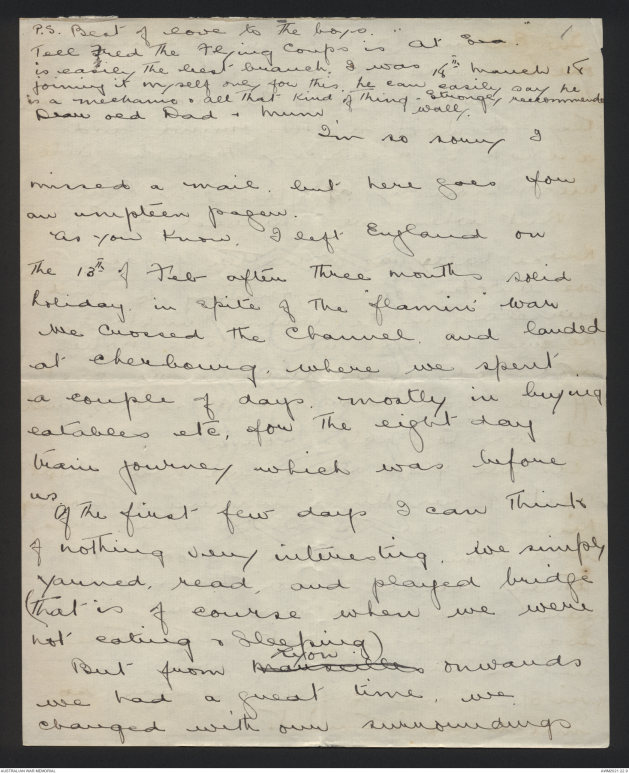 P.S. Best of love to the boys. 1
Tell Fred the Flying Coups is "At Sea."
is easily the best branch. I was 18th March 18
joining it myself only for this. he can easily say he
is a mechanic & all that kind of thing. Strongly recommended
Dear old Dad & Mum Wally.
I'm so sorry I
missed a mail, but here goes for
an umpteen pager.
As you know, I left England on
the 13th of Feb after three months solid
holiday in spite of the "flamin" war
We crossed the Channel, and landed
at Cherbourg, where we spent
a couple of days, mostly in buying
eatables etc, for the eight day
train journey which was before
us
Of the first few days I can think
of nothing very interesting. We simply
yarned, read, and played bridge
(that is of course when we were
not eating & sleeping)
Lyon
But from Marseilles onwards
we had a great time, we
changed with our surroundings
AUSTRALIAN WAR MEMORIAL